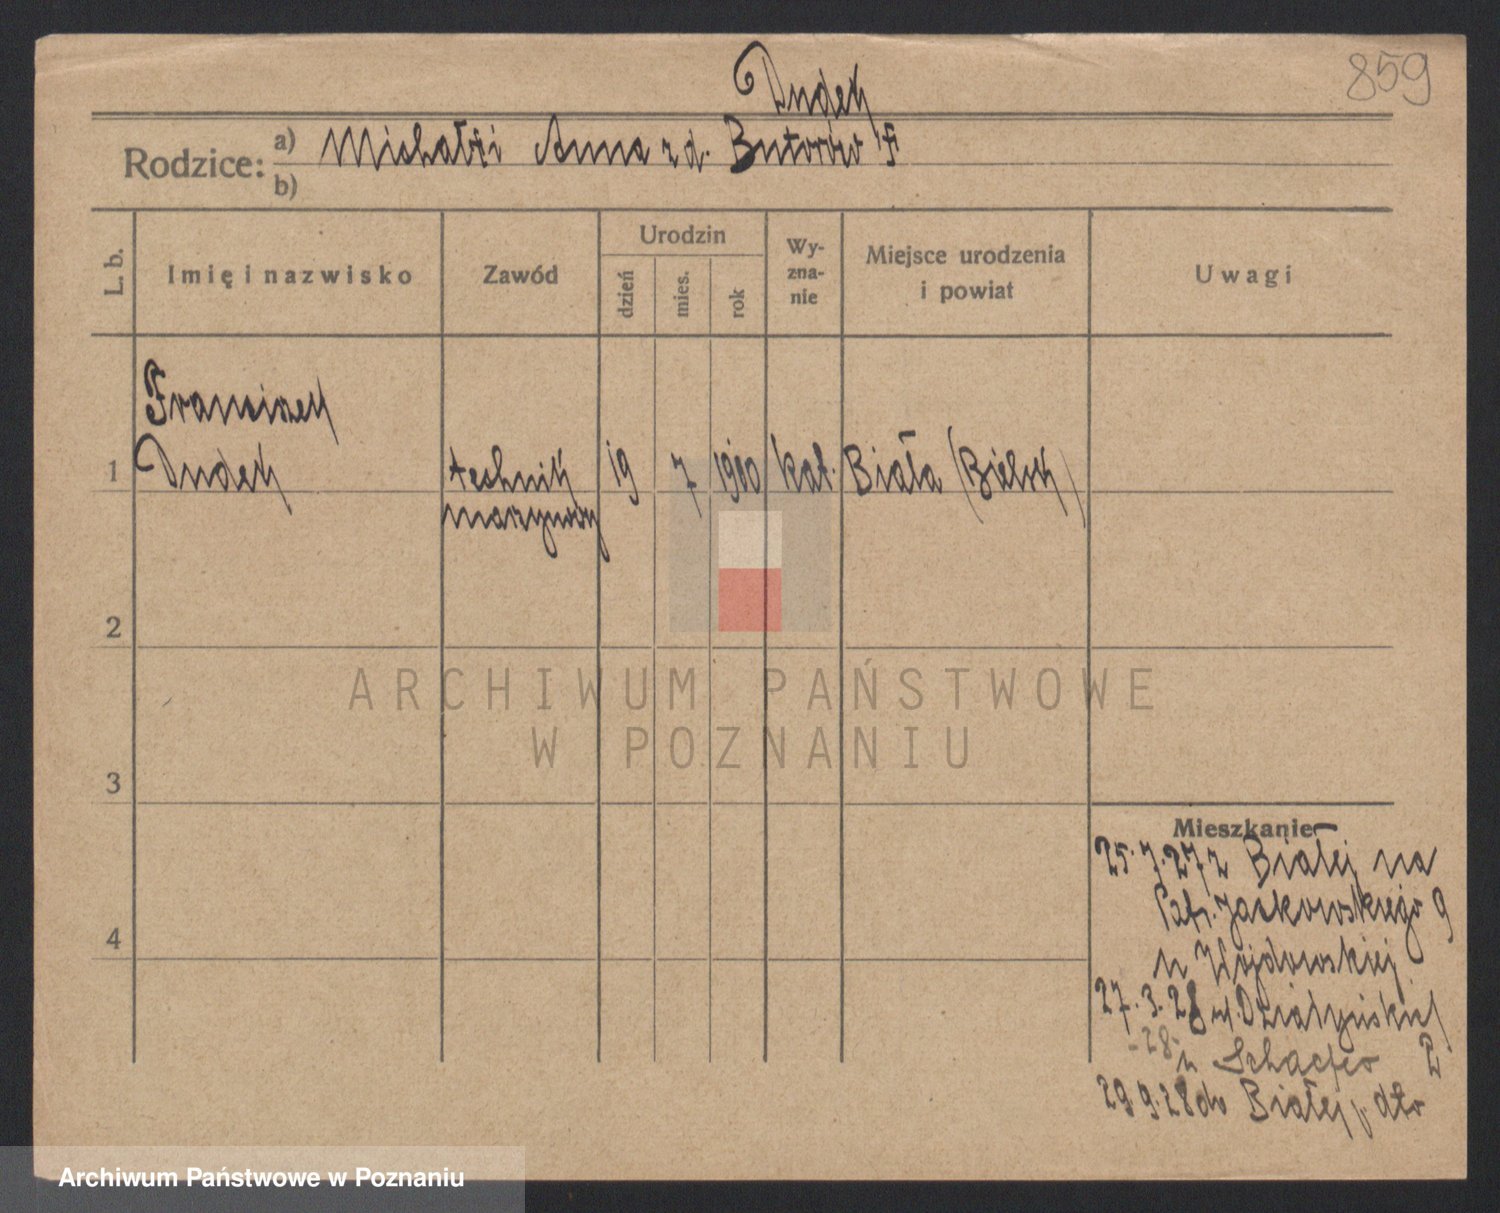 859
Dudek
Rodzice: a) Michał i Anna z d. Butorów
b)
L. b.
Imię i nazwisko
Zawód
Urodzin
dzień
mies.
rok
Wy-
zna-
nie
Miejsce urodzenia
i powiat
Uwagi
Franciszek
1 Dudek technik 19 7 1900 kat. Biała (Bielsk)
maszynowy
2
ARCHIWUM PAŃSTWOWE
W POZNANIU
3
Mieszkanie
25.7.27 z Białej na
Jackowskiego 9
u Wojdowskiej
4
27.3.28 ul. Działyńskich
-28-
u Schaefer 2
29.9.28 do Białej
Archiwum Państwowe w Poznaniu